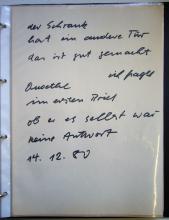 der Schrank
hat ein andere Tür
das ist gut gemacht
ich fragte
Goethe
im ersten Brief
ob er es selbst war
keine Antwort
14. 12. 80